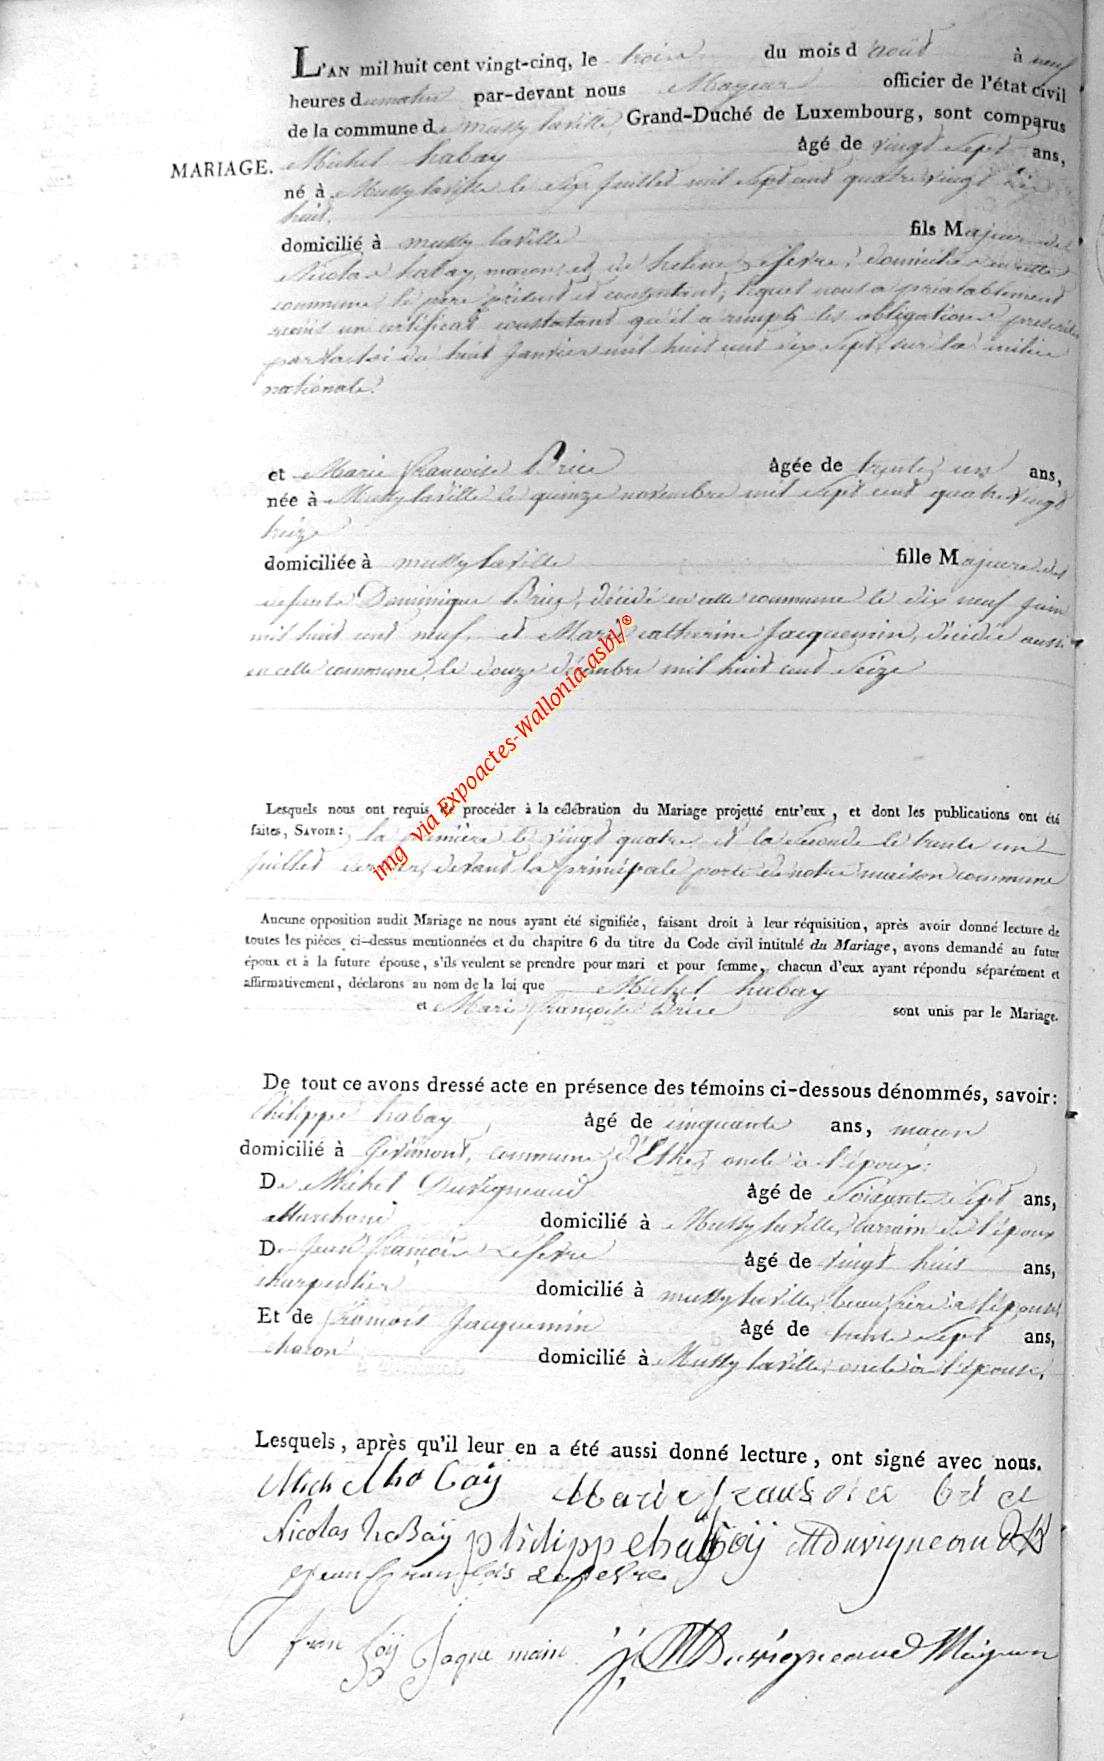 L'AN mil huit cent vingt-cinq, le trois du mois d'août à neuf
heures du matin par-devant nous Mayeur officier de l'état civil
de la commune de mussy laville, Grand-Duché de Luxembourg, sont comparus
MARIAGE. Michel habay âgé de vingt sept ans,
né à Mussy laville le Six Juillet mil Sept cent quatre vingt dix
huit.
domicilié à mussy laville fils Majeur de
Nicolas habay, maçon, et de helene Lefevre, domiciliés en cette
commune, le père présent et consentant, lequel nous a préalablement
remis un certificat constatant qu'il a rempli les obligations prescrites
par la loi du huit Janvier mil huit cent dix Sept, sur la milice
nationale.
et Marie françoise Brice âgée de trente un ans,
née à Mussy laville le quinze novembre mil Sept cent quatre vingt
treize
domiciliée à mussy laville fille Majeure des
defunts Dominique Brice, décédé en cette commune le dix neuf Juin
mil huit cent neuf, et Marie catherine Jacquemin, décédée aussi
en cette commune le douze décembre mil huit cent Seize
Lesquels nous ont requis de procéder à la célébration du Mariage projetté entr'eux, et dont les publications ont été
faites, SAVOIR: la première le vingt quatre et la Seconde le trente un
Juillet dernier, devant la principale porte de notre maison commune
Aucune opposition audit Mariage ne nous ayant été signifiée, faisant droit à leur réquisition, après avoir donné lecture de
toutes les piéces ci-dessus mentionnées et du chapitre 6 du titre du Code civil intitulé du Mariage, avons demandé au futur
époux et à la future épouse, s'ils veulent se prendre pour mari et pour femme, chacun d'eux ayant répondu séparément et
affirmativement, déclarons au nom de la loi que Michel habay
et Marie françoise Brice sont unis par le Mariage.
De tout ce avons dressé acte en présence des témoins ci-dessous dénommés, savoir:
Philippe habay, âgé de cinquante ans, maçon
domicilié à Gévimont, commune d'Ethe, oncle à l'époux:
De Michel Duvigneaud âgé de Soixante Sept ans,
Marchand domicilié à Mussy laville, parrain de l'époux
De Jean françois Lefevre âgé de vingt huit ans,
charpentier domicilié à mussy laville, beau frère à l'épouse
Et de françois Jacquemin âgé de trente Sept ans,
charon domicilié à Mussy laville, oncle à l'épouse.
Lesquels, après qu'il leur en a été aussi donné lecture, ont signé avec nous.
Michel ha baÿ Marie fransoise bri ce
Nicolas haBaÿ philippe habaÿ M Duvigneaud
Jean françois Lefevre
fran soÿ Jaque main J. M Duvigneaud Mayeur
img via Expoactes-Wallonia-asbl/®